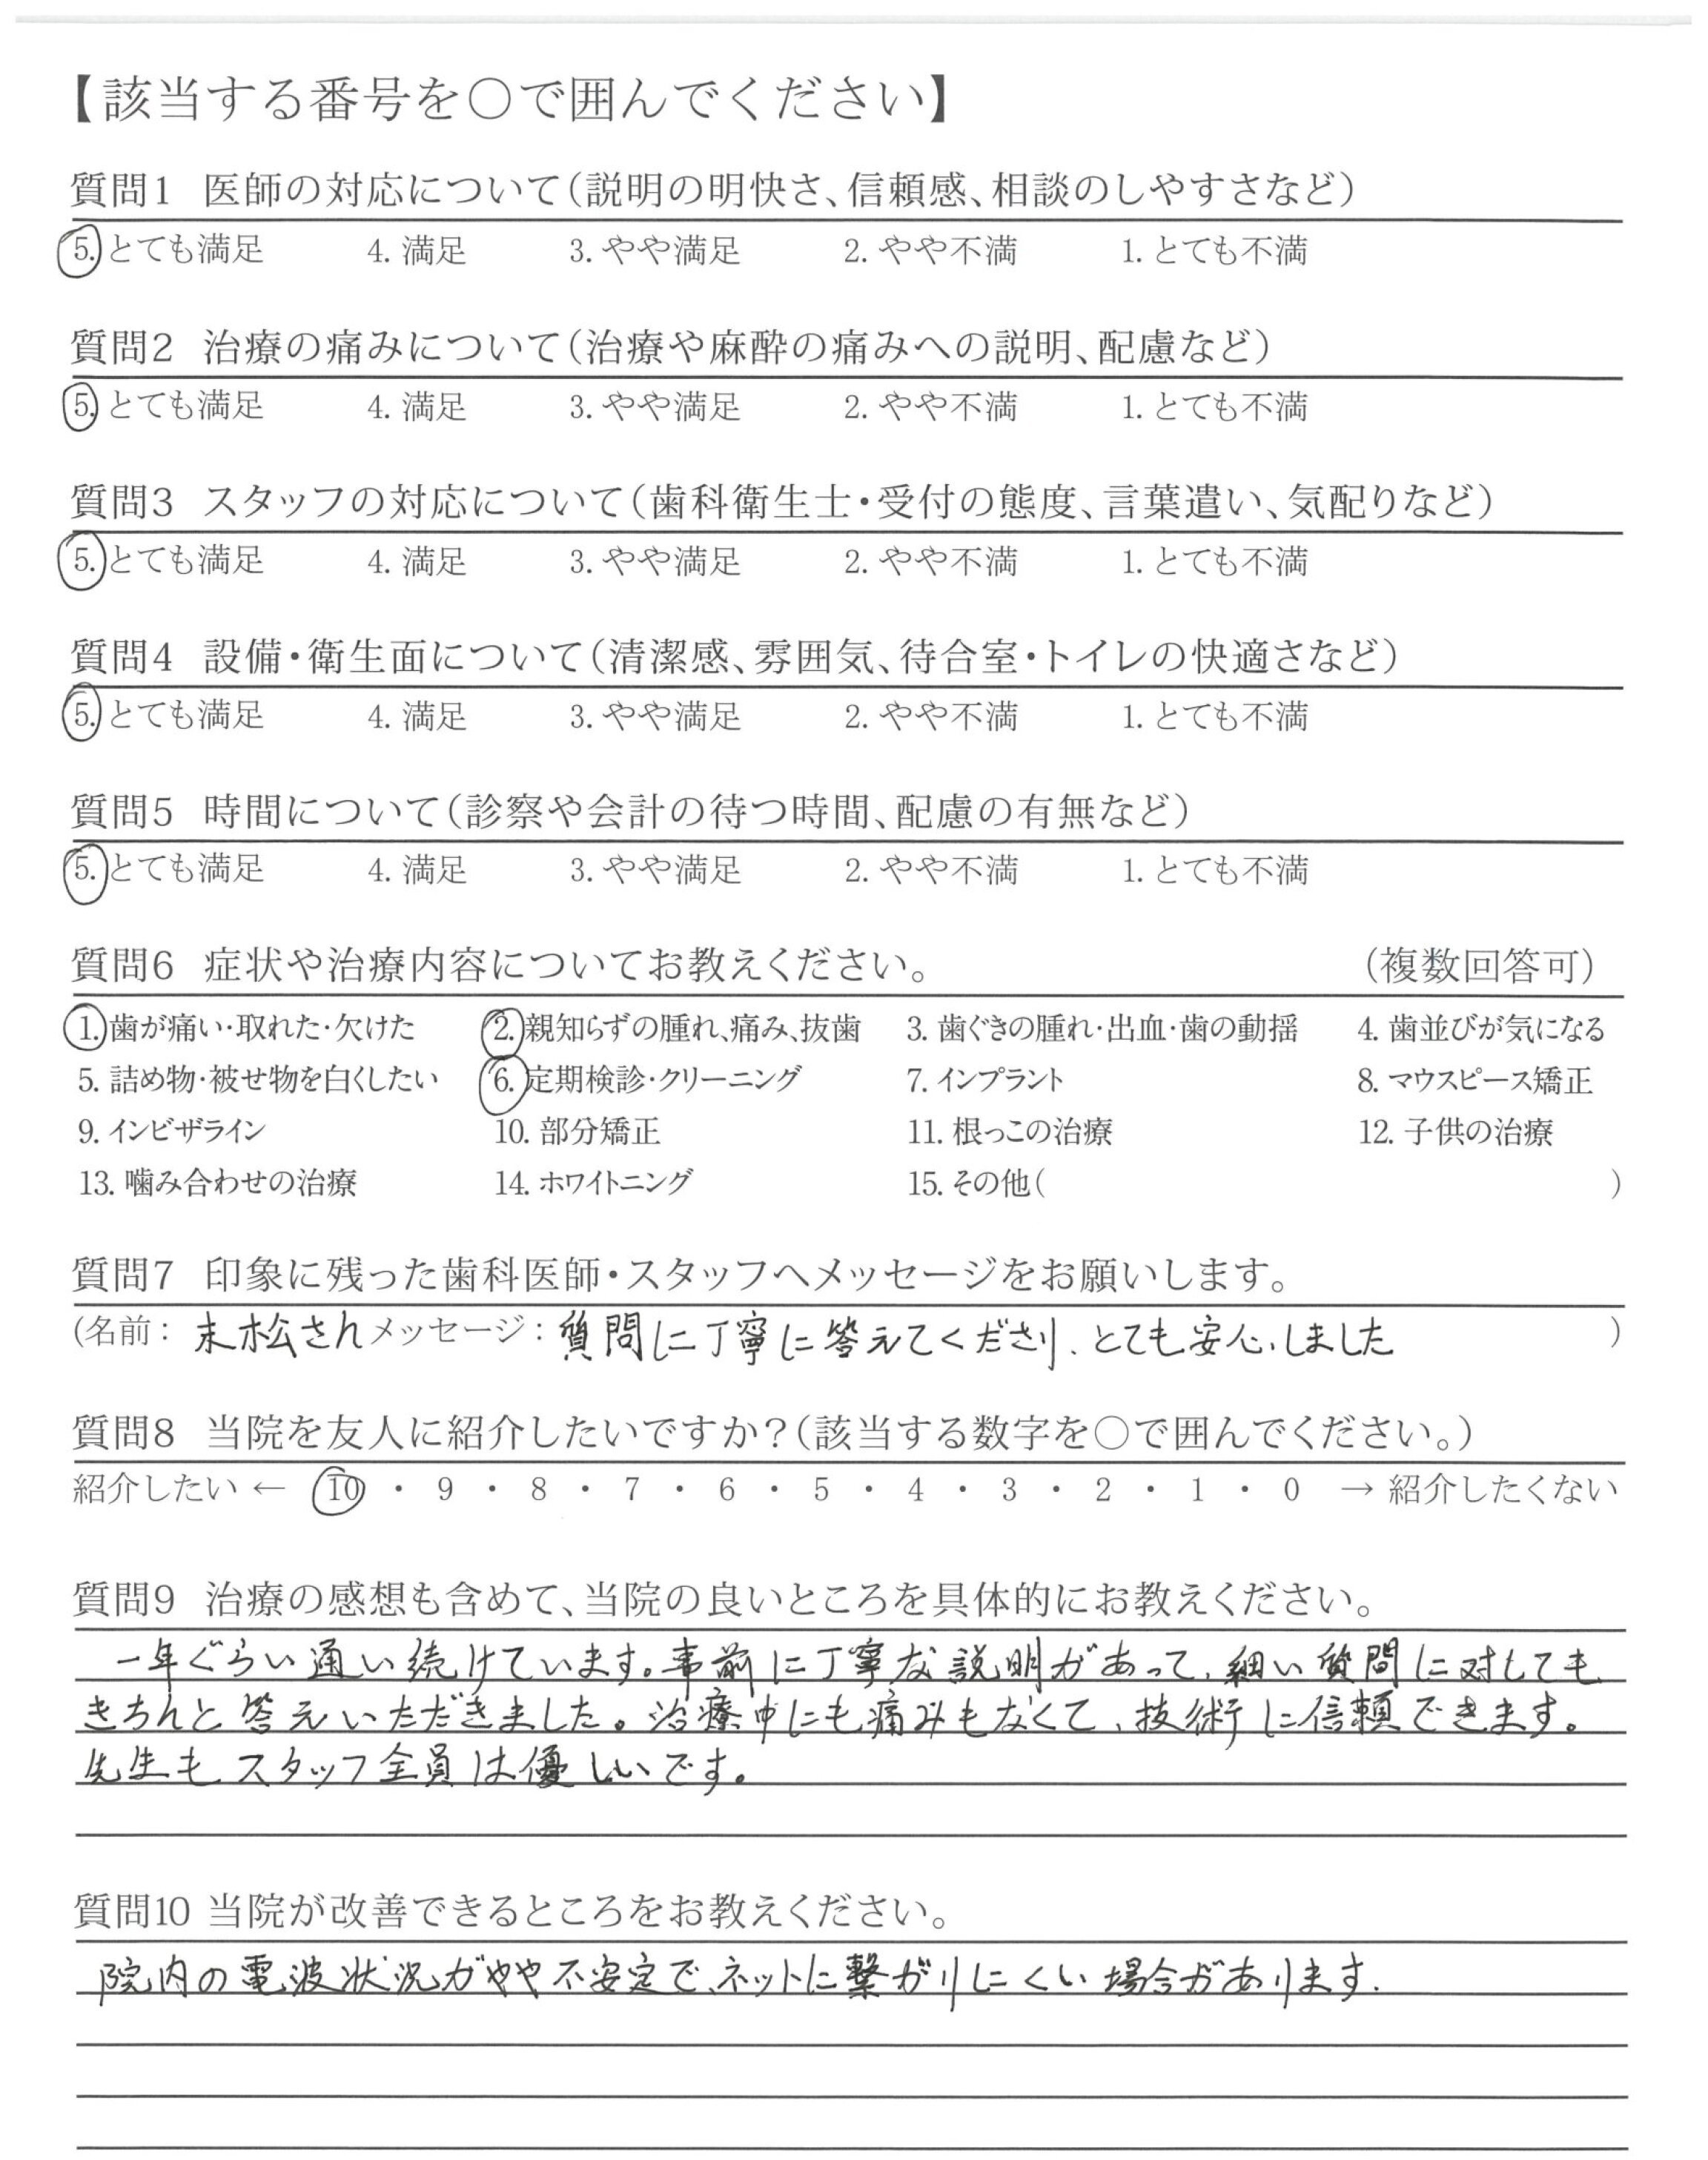 【該当する番号を〇で囲んでください】
質問1 医師の対応について(説明の明快さ、信頼感、相談のしやすさなど)
5. とても満足 4. 満足 3. やや満足 2. やや不満 1. とても不満
質問2 治療の痛みについて(治療や麻酔の痛みへの説明、配慮など)
5. とても満足 4. 満足 3. やや満足 2. やや不満 1. とても不満
質問3 スタッフの対応について(歯科衛生士・受付の態度、言葉遣い、気配りなど)
5. とても満足 4. 満足 3. やや満足 2. やや不満 1. とても不満
質問4 設備・衛生面について(清潔感、雰囲気、待合室・トイレの快適さなど)
5. とても満足 4. 満足 3. やや満足 2. やや不満 1. とても不満
質問5 時間について(診察や会計の待つ時間、配慮の有無など)
5. とても満足 4. 満足 3. やや満足 2. やや不満 1. とても不満
質問6 症状や治療内容についてお教えください。 (複数回答可)
1. 歯が痛い・取れた・欠けた 2. 親知らずの腫れ、痛み、抜歯 3. 歯ぐきの腫れ・出血・歯の動揺 4. 歯並びが気になる
5. 詰め物・被せ物を白くしたい 6. 定期検診・クリーニング 7. インプラント 8. マウスピース矯正
9. インビザライン 10. 部分矯正 11. 根っこの治療 12. 子供の治療
13. 噛み合わせの治療 14. ホワイトニング 15. その他( )
質問7 印象に残った歯科医師・スタッフへメッセージをお願いします。
(名前: 末松さん メッセージ: 質問に丁寧に答えてくださり、とても安心しました )
質問8 当院を友人に紹介したいですか?(該当する数字を〇で囲んでください。)
紹介したい ← 10 ・ 9 ・ 8 ・ 7 ・ 6 ・ 5 ・ 4 ・ 3 ・ 2 ・ 1 ・ 0 → 紹介したくない
質問9 治療の感想も含めて、当院の良いところを具体的にお教えください。
一年ぐらい通い続けています。事前に丁寧な説明があって、細い質問に対しても
きちんと答えいただきました。治療中にも痛みもなくて、技術に信頼できます。
先生もスタッフ全員は優しいです。
質問10 当院が改善できるところをお教えください。
院内の電波状況がやや不安定で、ネットに繋がりにくい場合があります.